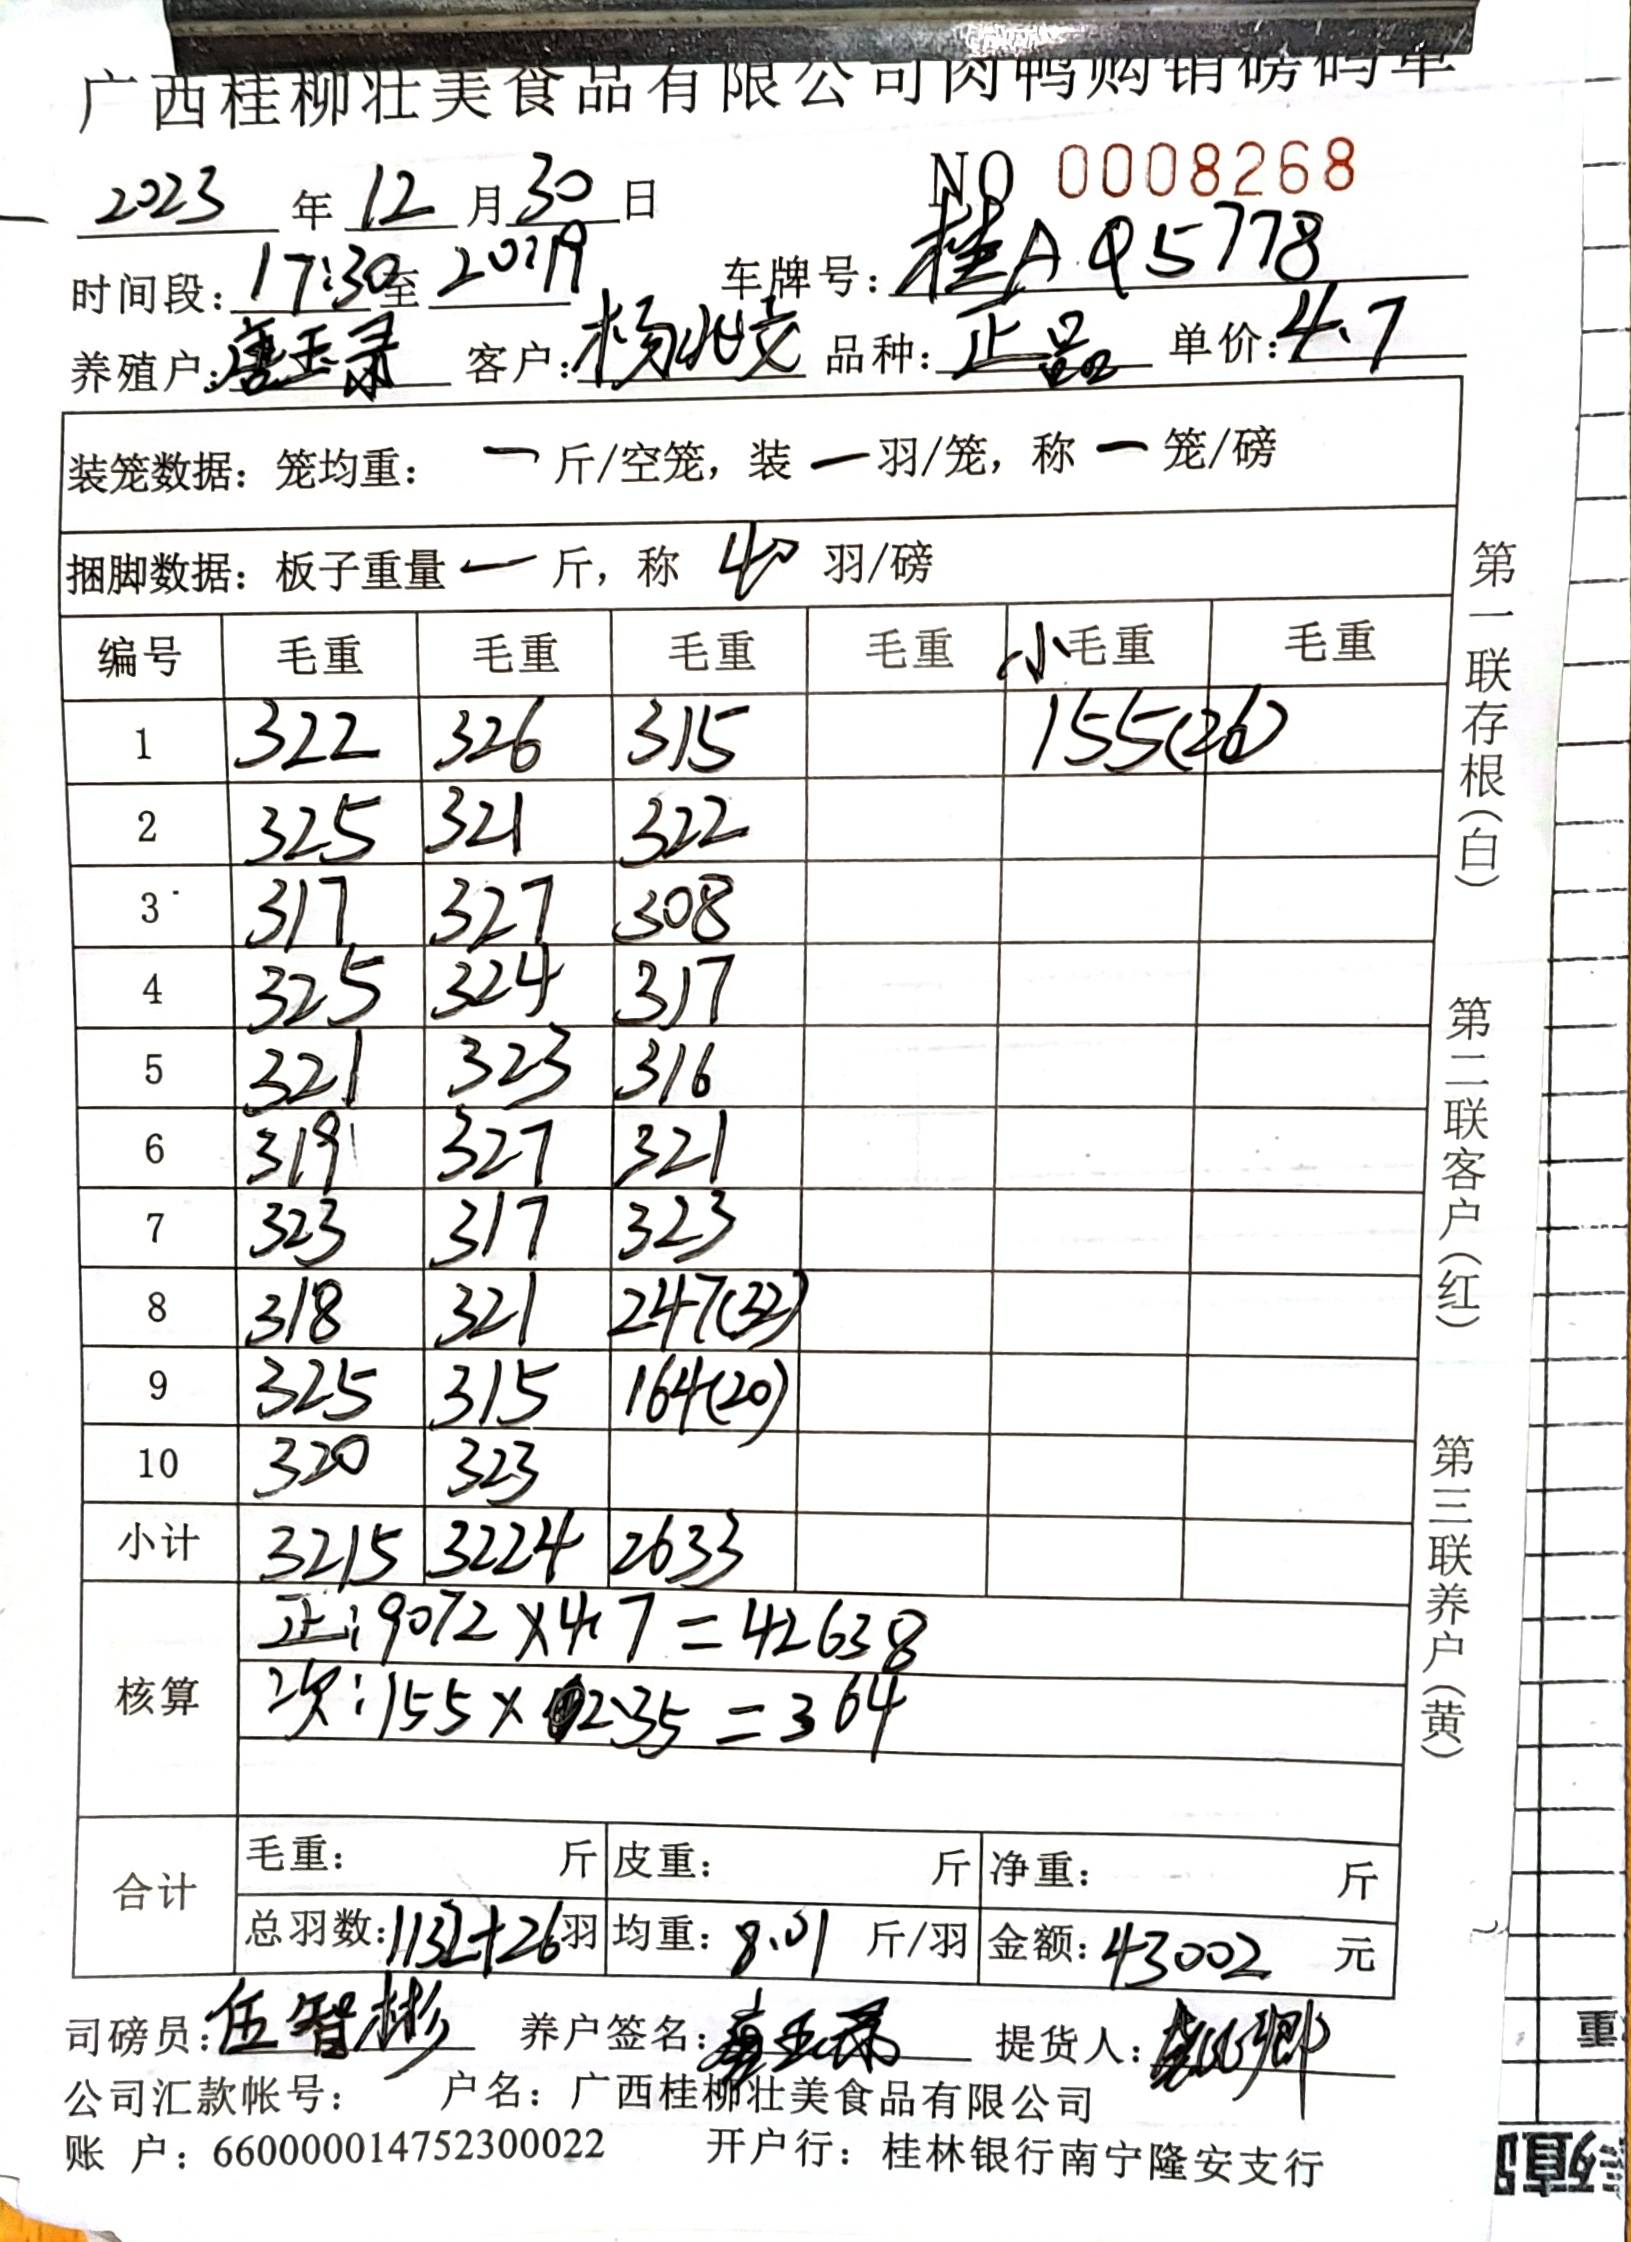 广西桂柳壮美食品有限公司肉鸭购销磅码单
NO 0008268
2023年12月30日
时间段:17:30至20:19 车牌号:桂AQ5778
养殖户:唐玉录 客户:杨兆克 品种:正品 单价:4.7
装笼数据:笼均重: 一斤/空笼,装一羽/笼,称一笼/磅
捆脚数据:板子重量一斤,称 40 羽/磅
编号 毛重 毛重 毛重 毛重 小毛重 毛重
1 322 326 315 155(26)
2 325 321 322
3 317 327 308
4 325 324 317
5 321 323 316
6 319 327 321
7 323 317 323
8 318 321 247(32)
9 325 315 164(20)
10 320 323
小计 3215 3224 2633
核算
正:9072×4.7=42638
次:155×2.35=364
合计
毛重: 斤 皮重: 斤 净重: 斤
总羽数:1132+26羽 均重:8.01斤/羽 金额:43002元
司磅员:伍智彬 养户签名:唐玉录 提货人:
公司汇款帐号: 户名:广西桂柳壮美食品有限公司
账 户:660000014752300022 开户行:桂林银行南宁隆安支行
第一联存根(白)
第二联客户(红)
第三联养户(黄)
重